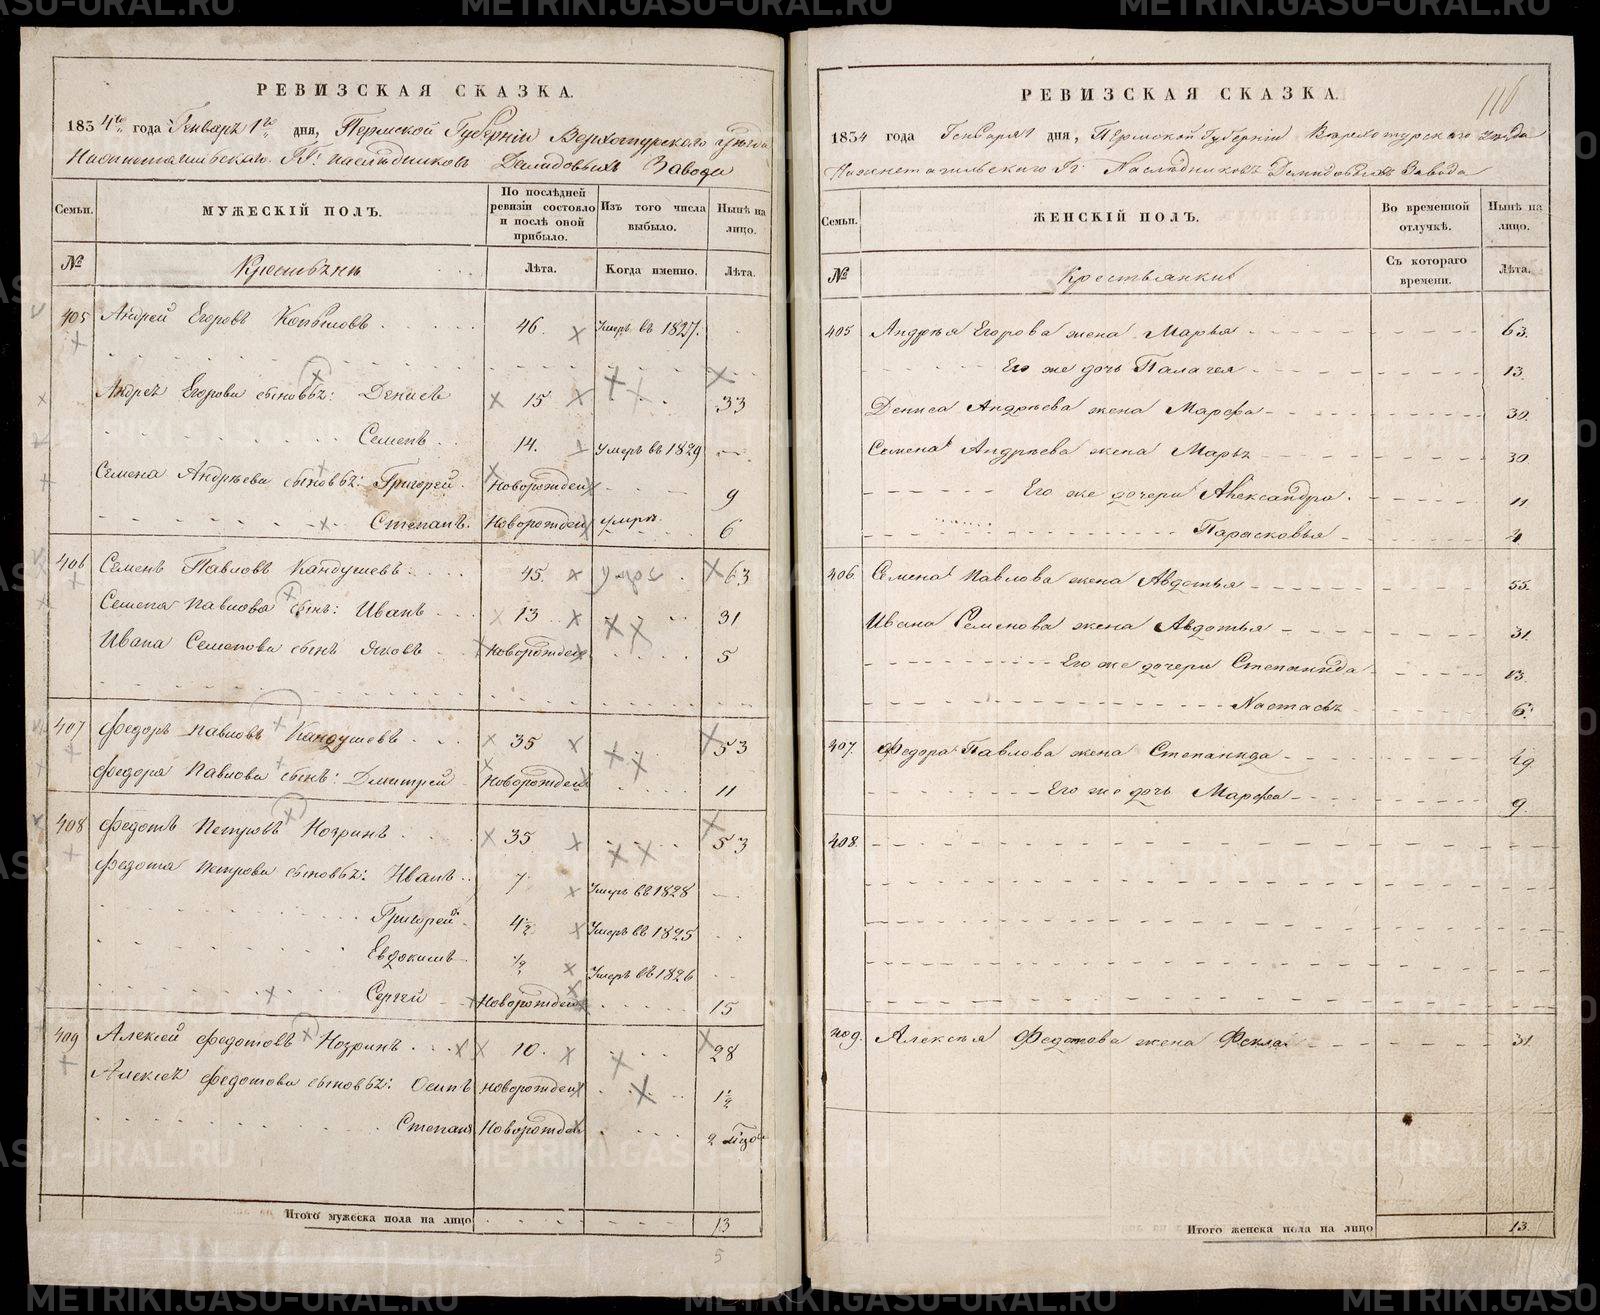 РЕВИЗСКАЯ СКАЗКА.
1834го года Генваря 1го дня, Пермской Губерніи Верхотурского уѣзда
Нижнетагильского Гг. наслѣдниковъ Демидовыхъ Завода
Семьи. МУЖЕСКІЙ ПОЛЪ. По послѣдней ревизіи состояло и послѣ оной прибыло. Изъ того числа выбыло. Нынѣ на лицо.
№ Крестьяне Лѣта. Когда именно. Лѣта.
405 Андрей Егоровъ Копыловъ 46. Умеръ въ 1827.
Андрея Егорова сыновья: Денисъ 15 33
Семенъ 14. умеръ въ 1829
Семена Андрѣева сыновья: Григорей Новорожден 9
Степанъ. Новорожден умре. 6
406 Семенъ Павловъ Кандушевъ 45. умре 63
Семена Павлова сынъ: Иванъ 13 31
Ивана Семенова сынъ Яковъ Новорожден 5
407 Федоръ Павловъ Кандушевъ 35 53
Федора Павлова сынъ: Дмитрей Новорожден 11
408 Федотъ Петровъ Нозринъ 35 53
Федота Петрова сыновья: Иванъ 7 Умеръ въ 1828
Григорей 4½ Умеръ въ 1825
Евдокимъ ½ Умеръ въ 1826
Сергей Новорожден 15
409 Алексей Федотовъ Нозринъ 10. 28
Алексея Федотова сыновья: Осипъ Новорожден 1½
Степанъ Новорожден 2
Итого мужеска пола на лицо 13
5
116
РЕВИЗСКАЯ СКАЗКА.
1834 года Генваря 1 дня, Пермской Губерніи Верхотурского уезда
Нижнетагильского Гг. Наслѣдниковъ Демидовыхъ Завода
Семьи. ЖЕНСКІЙ ПОЛЪ. Во временной отлучкѣ. Нынѣ на лицо.
№ Крестьянки Съ котораго времени. Лѣта.
405 Андрѣя Егорова жена Марья 63.
Его же дочь Палагея 13.
Дениса Андрѣева жена Марфа 30.
Семена Андрѣева жена Марья 30.
Его же дочери Александра. 11
Парасковья 4
406. Семена Павлова жена Авдотья 55.
Ивана Семенова жена Авдотья 31.
Его же дочери Степанида 13.
Настасья 6.
407. Федора Павлова жена Степанида 49
Его же дочь Марфа 9
408.
409. Алексѣя Федотова жена Фекла 31.
Итого женска пола на лицо 13
METRIKI.GASU-URAL.RU